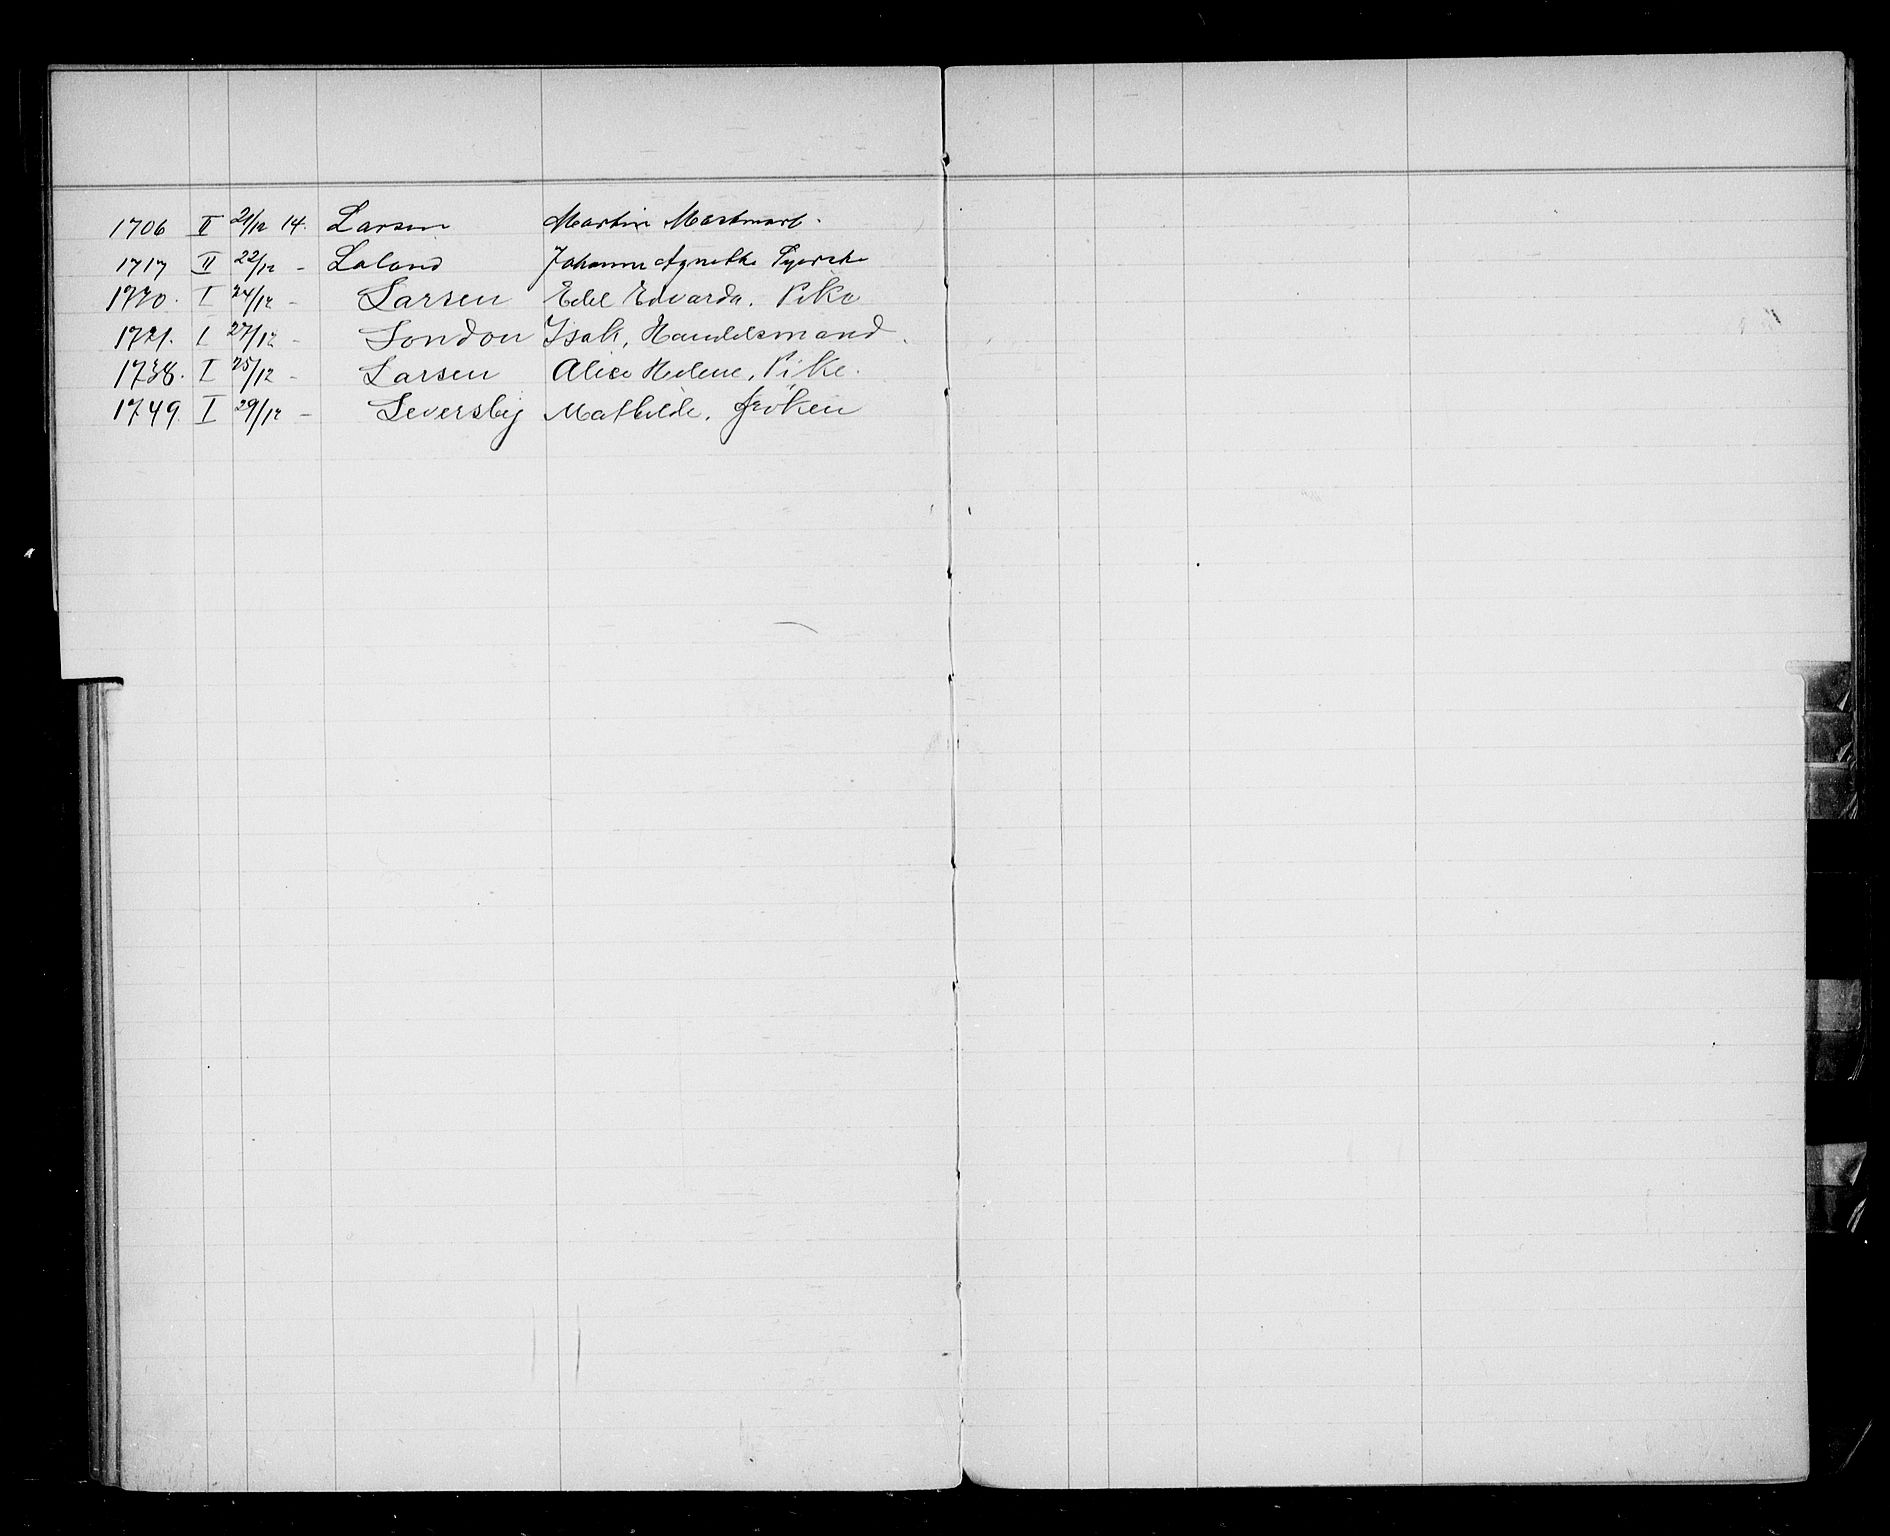 1706 II 21/12 14. Larsen Martin
1717 II 22/12 - Laland Johanne Agnethe
1720. I 24/12 - Larsen Edel Edvarda. Pike
1721. I 27/12 - London Isak, Handelsmand.
1738. I 25/12 - Larsen Alice Helene, Pike.
1749. I 29/12 - Seversby Mathilde. Frøken